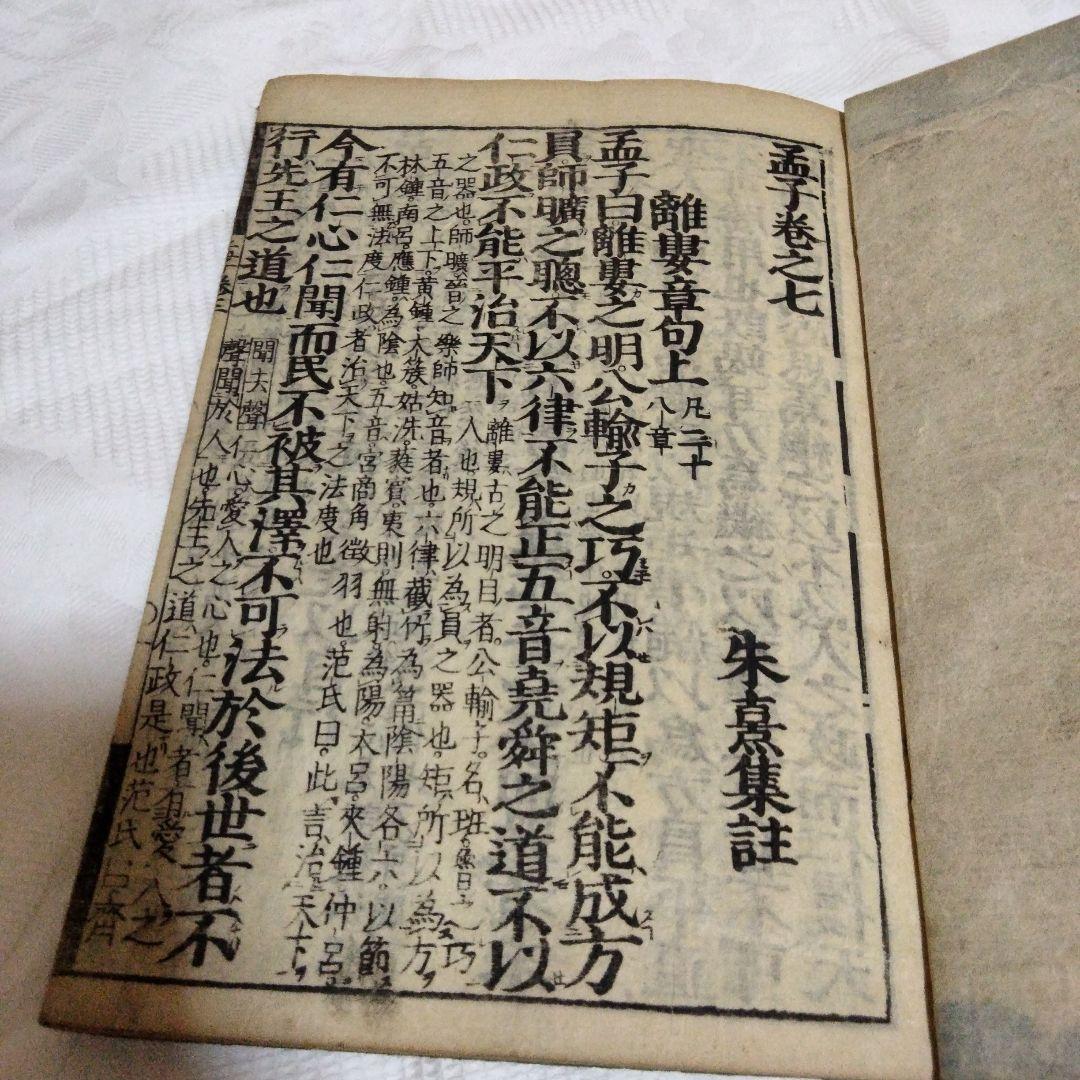 孟子卷之七
朱熹集註
離婁章句上
凡二十
八章
孟子曰離婁之明公輸子之巧不以規矩不能成方
員師曠之聰不以六律不能正五音堯舜之道不以
仁政不能平治天下
離婁古之明目者公輸子名班魯之巧
人也規所以為員之器也矩所以為方
之器也師曠晉之樂師知音者也六律截竹為筩陰陽各六以節
五音之上下黃鍾大蔟姑洗蕤賓夷則無射為陽大呂夾鍾仲呂
林鍾南呂應鍾為陰也五音宮商角徵羽也范氏曰此言治天下
不可無法度仁政者治天下之法度也
今有仁心仁聞而民不被其澤不可法於後世者不
行先王之道也
聞去聲仁心愛人之心也仁聞者有愛人之
聲聞於人也先王之道仁政是也范氏曰齊